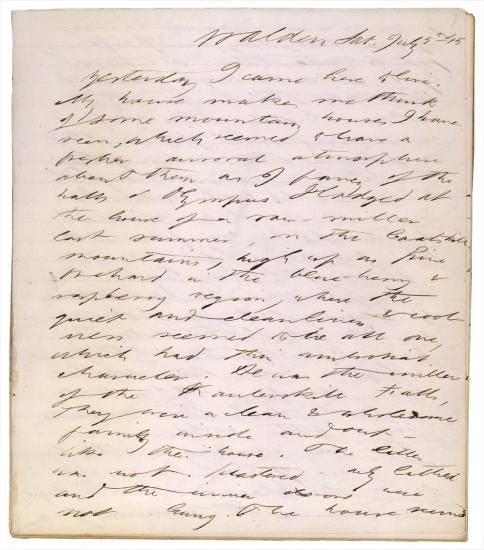 Walden Sat. July 5th 45
Yesterday I came here to live.
My house makes me think
of some mountain houses I have
seen, which seemed to have a
fresher auroral atmosphere
about them as I fancy of the
halls of Olympus. I lodged at
the house of a saw-miller
last summer, on the Caatskill
mountains, high up as Pine
orchard in the blue-berry &
raspberry region, where the
quiet and cleanliness & cool-
ness seemed to be all one,
which had this ambrosial
character. He was the miller
of the Kauterskill Falls,
They were a clean & wholesome
family inside and out—
like their house. The latter
was not plastered only lathed
and the inner doors were
not hung. The house seemed